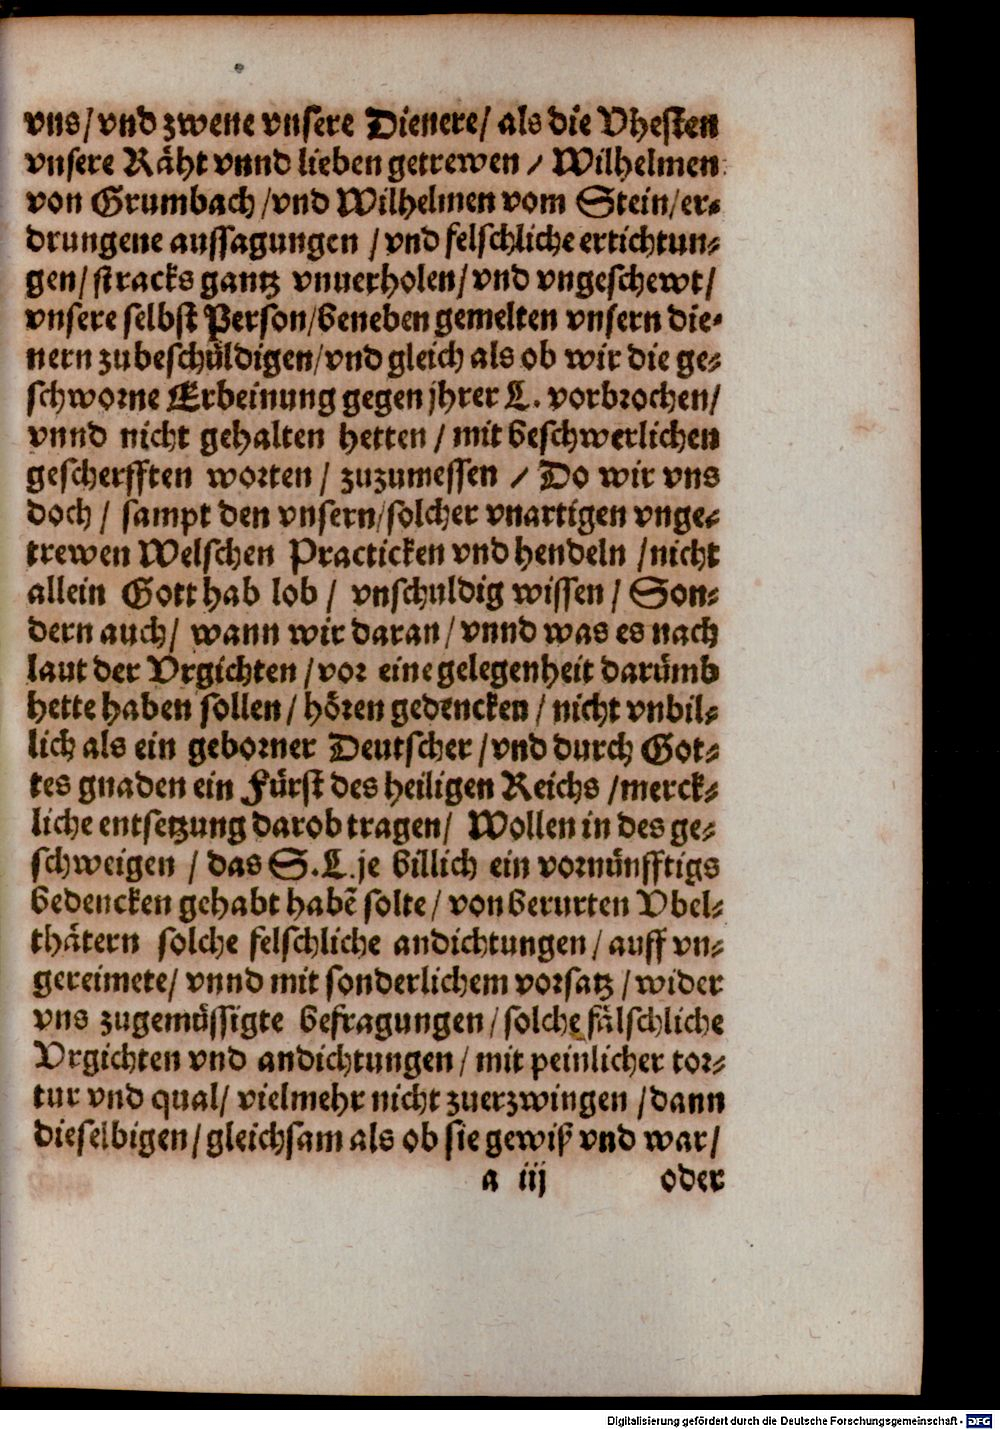 vns/vnd zwene vnsere Dienere/ als die Vhesten
vnsere Räht vnnd lieben getrewen / Wilhelmen
von Grumbach /vnd Wilhelmen vom Stein/er⸗
drungene aussagungen /vnd felschliche ertichtun⸗
gen/ stracks gantz vnuerholen/ vnd vngeschewt/
vnsere selbst Person/beneben gemelten vnsern die⸗
nern zubeschüldigen/vnd gleich als ob wir die ge⸗
schworne Erbeinung gegen jhrer L. vorbrochen/
vnnd nicht gehalten hetten / mit beschwerlichen
gescherfften worten / zuzumessen / Do wir vns
doch / sampt den vnsern/solcher vnartigen vnge⸗
trewen Welschen Practicken vnd hendeln /nicht
allein Gott hab lob / vnschuldig wissen / Son⸗
dern auch/ wann wir daran/ vnnd was es nach
laut der Vrgichten /vor eine gelegenheit darümb
hette haben sollen / hören gedencken / nicht vnbil⸗
lich als ein geborner Deutscher /vnd durch Got⸗
tes gnaden ein Fürst des heiligen Reichs /merck⸗
liche entsetzung darob tragen/ Wollen in des ge⸗
schweigen / das S.L.je billich ein vornünfftigs
bedencken gehabt habẽ solte/ von berurten Vbel⸗
thätern solche felschliche andichtungen / auff vn⸗
gereimete/ vnnd mit sonderlichem vorsatz /wider
vns zugemässigte befragungen / solche fälschliche
Vrgichten vnd andichtungen / mit peinlicher tor⸗
tur vnd qual/ vielmehr nicht zuerzwingen /dann
dieselbigen/gleichsam als ob sie gewiß vnd war/
a iij oder
Digitalisierung gefördert durch die Deutsche Forschungsgemeinschaft - DFG